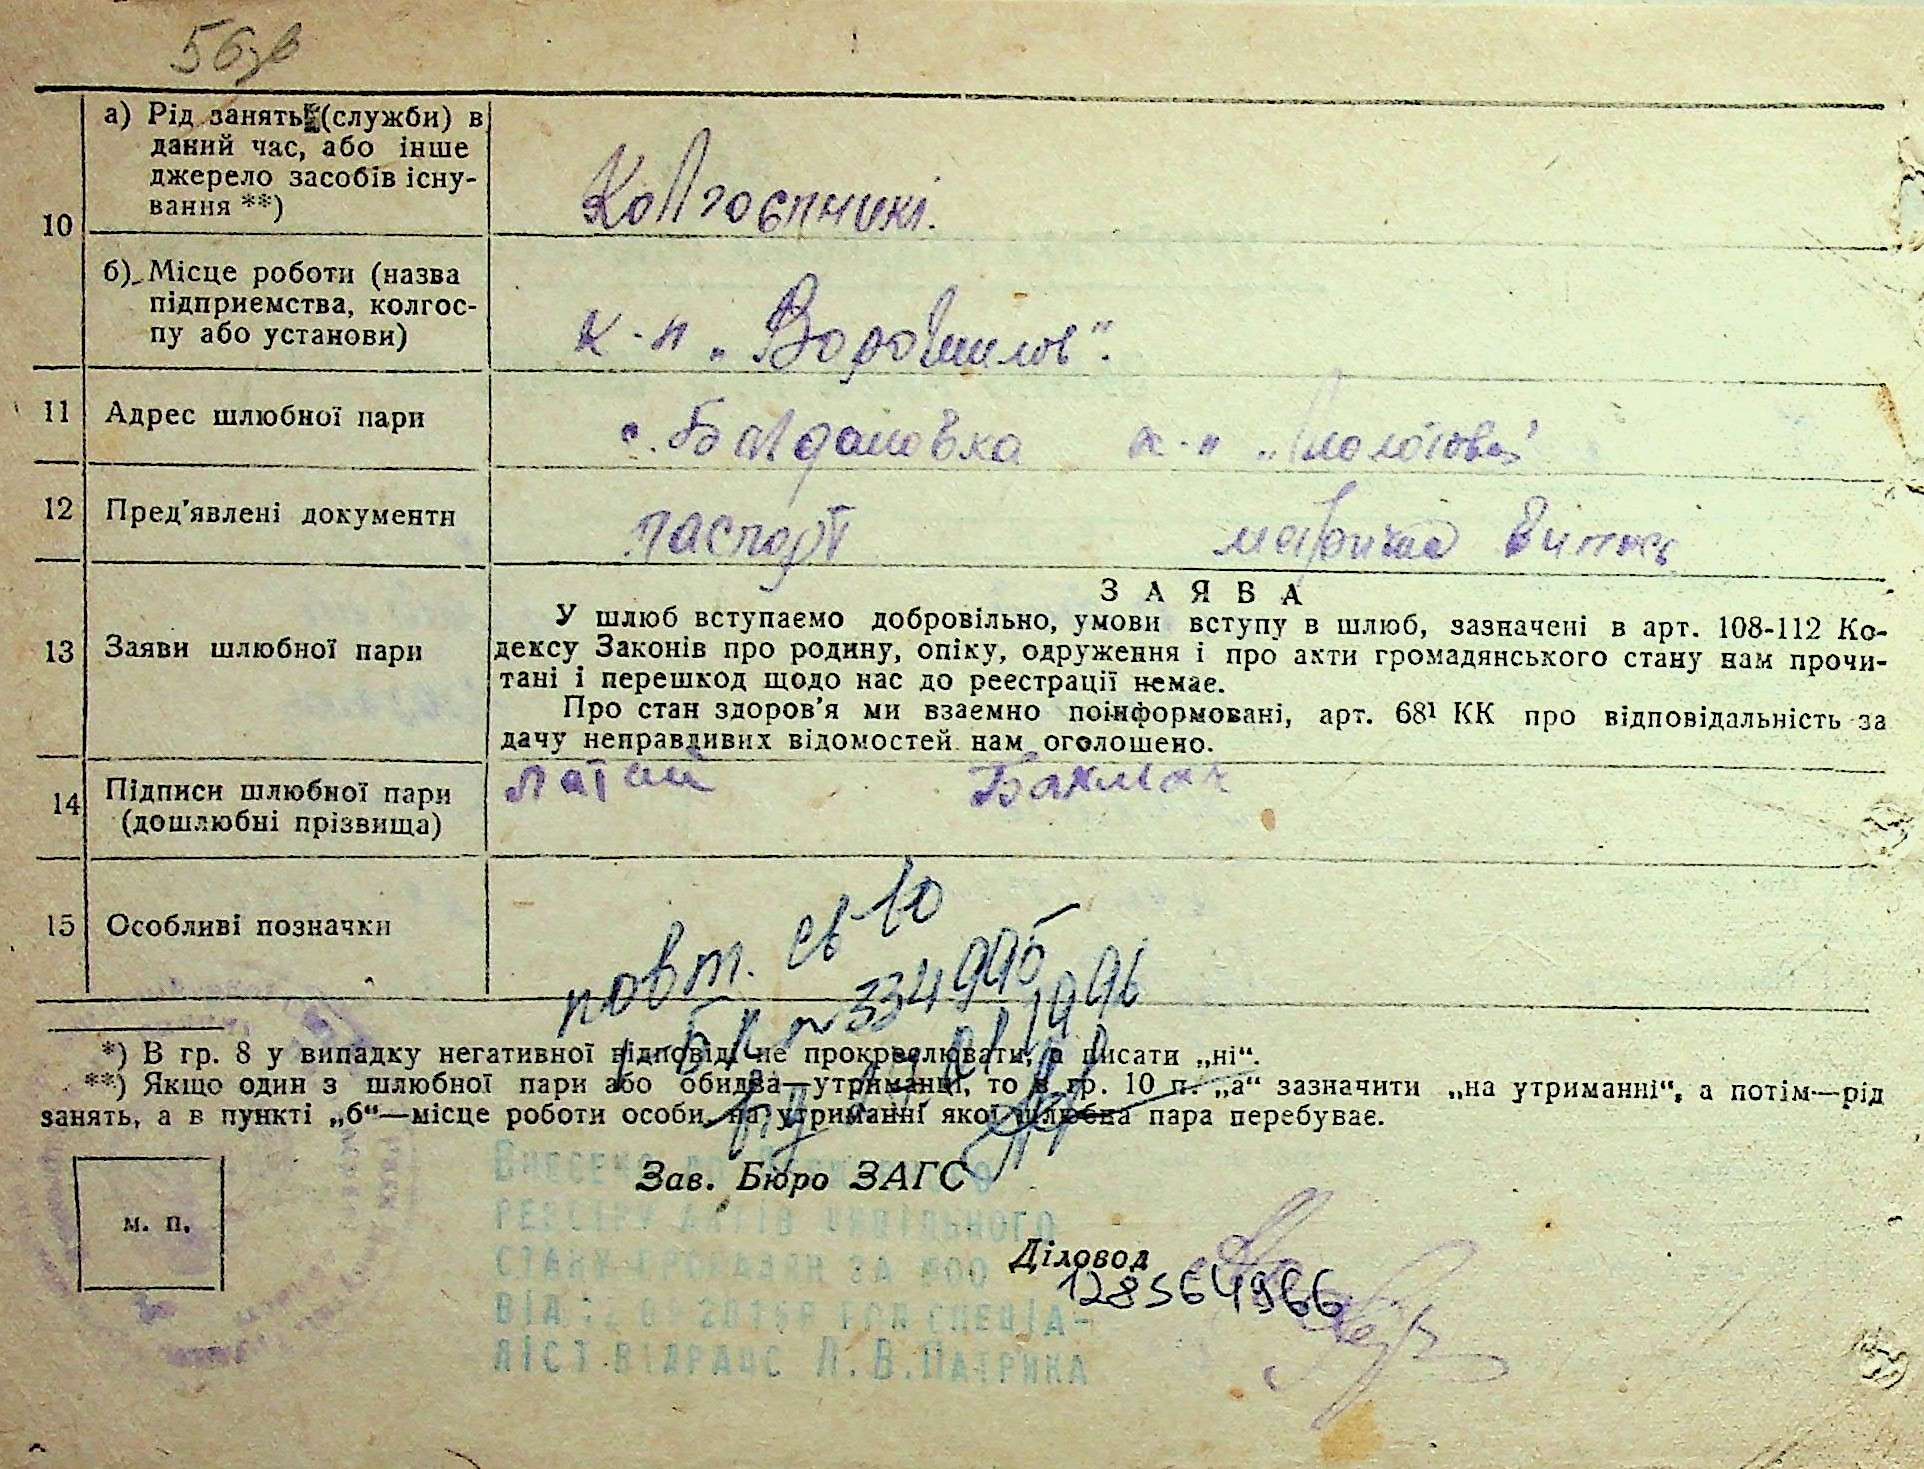 56зв
10
а) Рід занять (служби) в
даний час, або інше
джерело засобів існу-
вання **)
Колгоспникі.
б) Місце роботи (назва
підприємства, колгос-
пу або установи)
к-п „Ворошилов“.
11
Адрес шлюбної пари
с. Богдановка к-п
12
Пред'явлені документи
паспорт метрична випись
13
Заяви шлюбної пари
ЗАЯВА
У шлюб вступаємо добровільно, умови вступу в шлюб, зазначені в арт. 108-112 Ко-
дексу Законів про родину, опіку, одруження і про акти громадянського стану нам прочи-
тані і перешкод щодо нас до реєстрації немає.
Про стан здоров'я ми взаємно поінформовані, арт. 68¹ КК про відповідальність за
дачу неправдивих відомостей нам оголошено.
14
Підписи шлюбної пари
(дошлюбні прізвища)
Бахмач
15
Особливі позначки
повт. св-во
І-БК № 334995
від 1996
*) В гр. 8 у випадку негативної відповіді не прокреслювати, а писати „ні“.
**) Якщо один з шлюбної пари або обидва—утриманці, то в гр. 10 п. „а“ зазначити „на утриманні“, а потім—рід
занять, а в пункті „б“—місце роботи особи, на утриманні якої шлюбна пара перебуває.
м. п.
Зав. Бюро ЗАГС
Діловод
128564966
Внесено до Державного
реєстру актів цивільного
стану громадян за №00
від 2015р. спеціа-
ліст відрацс Л.В.Патрика